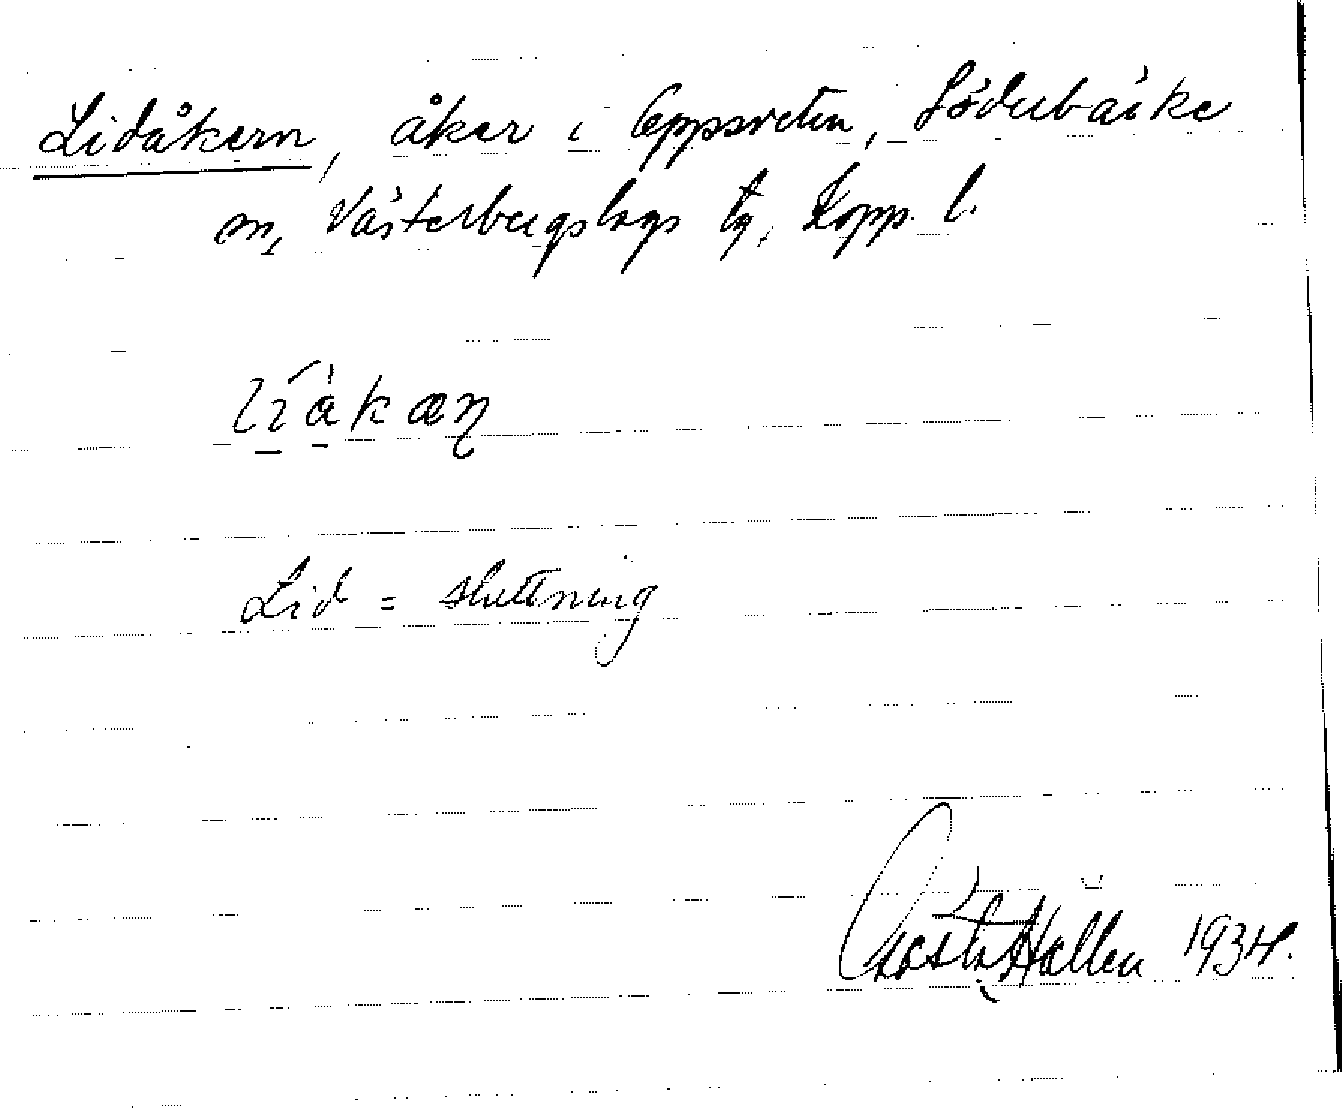 Lidåkern, åker i Oppsveten, Söderbärke
sn, Västerbergslags tg, Kopp. l.
Lid = sluttning
Gösta Hallén 1934.